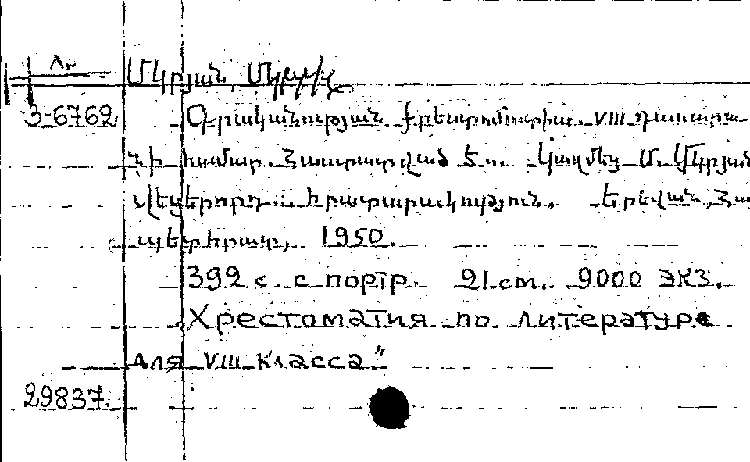 Մկրյան, Մկրտիչ
3-6762 Գրականության քրեստոմատիա. VIII դասարա-
նի համար. Հաստատված է ... Կազմեց Մ. Մկրյան
վեցերորդ հրատարակություն. Երևան, Հա
պետհրատ, 1950.
392 с. с портр. 21 см. 9000 экз.
Хрестоматия по литературе
для VIII класса"
29837.